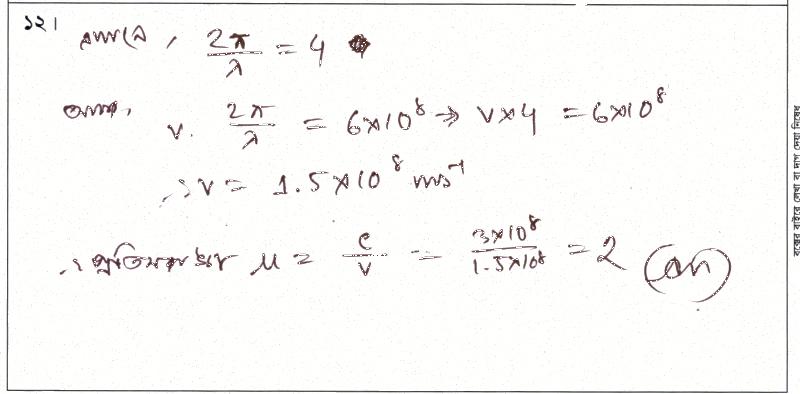 ১২। এখানে, 2π/λ = 4
আবার, v. 2π/λ = 6×10⁸ → v×4 = 6×10⁸
∴ v = 1.5×10⁸ ms⁻¹
∴ প্রতিসরাঙ্ক μ = c/v = 3×10⁸/1.5×10⁸ = 2 (Ans)
বক্সের বাইরে লেখা বা দাগ দেয়া নিষেধ